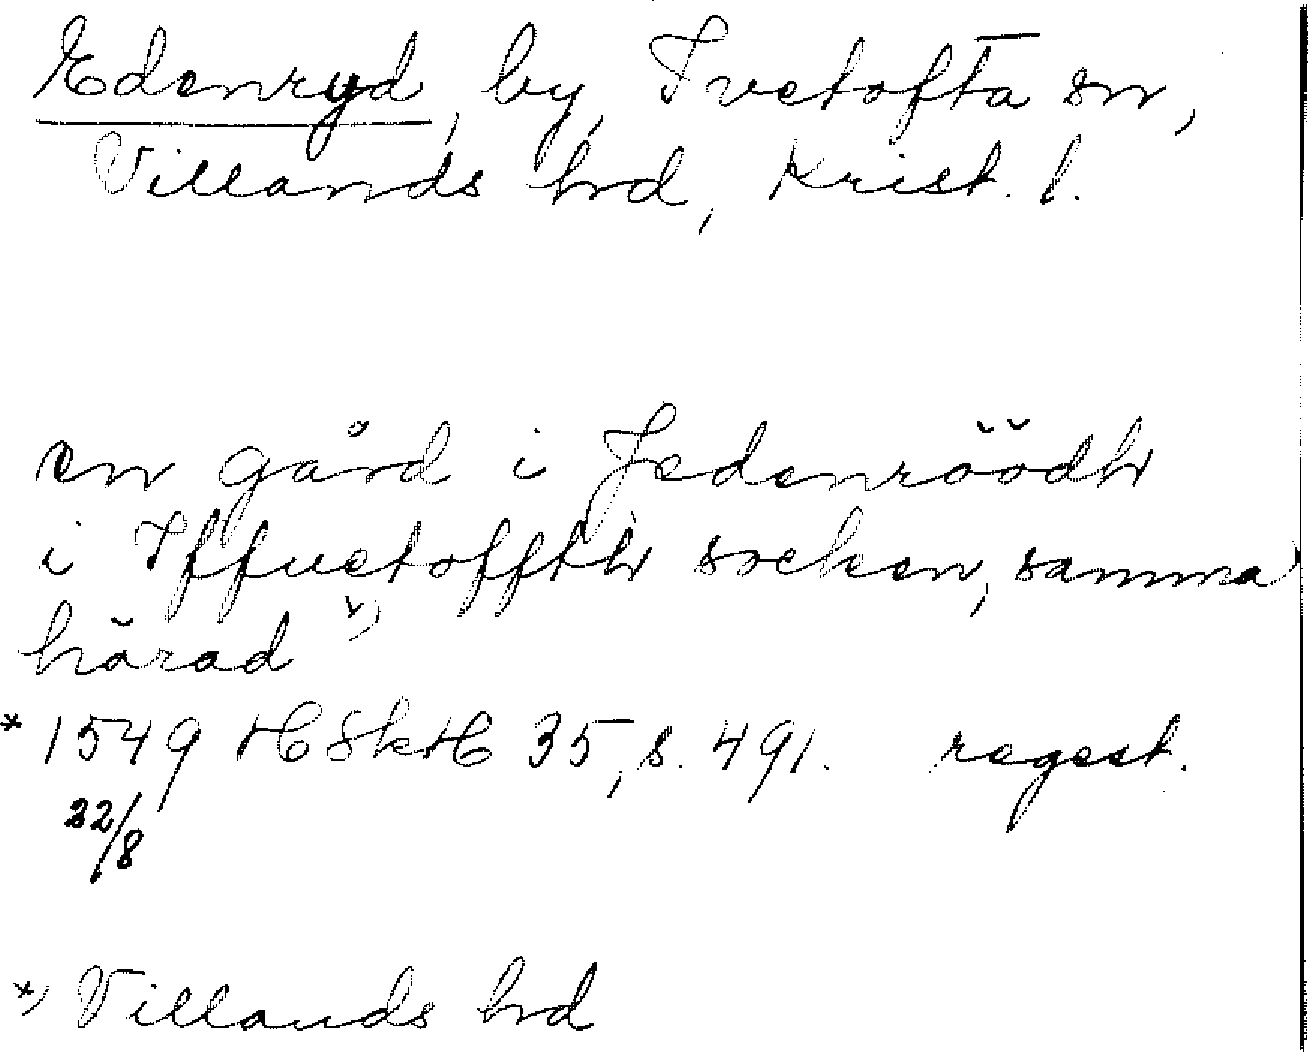 Edenryd, by, Ivetofta sn,
Villands hd, Krist. l.
en gård i Jedenröödh
i Iffuetoffth socken, samma
härad *)
* 1549 HSkH 35, s. 491. regest.
22/8
*) Villands hd